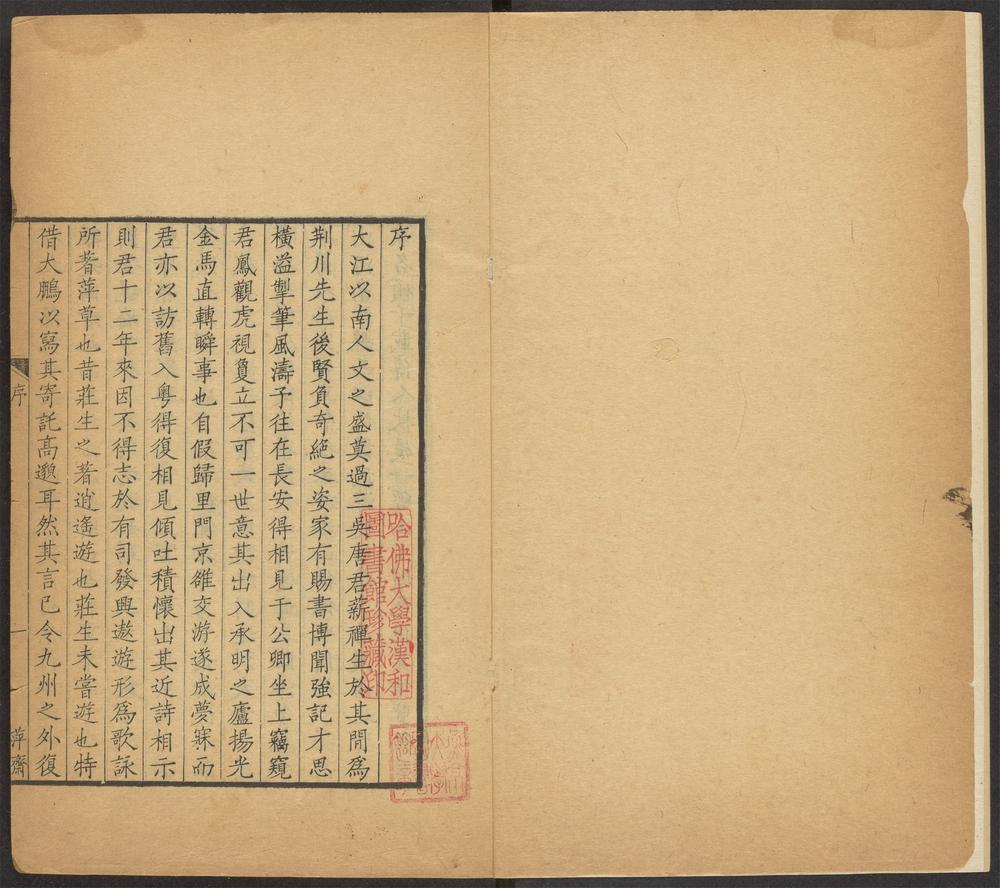 序
大江以南人文之盛莫過三吳唐君薪禪生於其閒爲
荆川先生後賢負奇絶之姿家有賜書博聞強記才思
橫溢掣筆風濤予往在長安得相見于公卿坐上竊窺
君鳳觀虎視敻立不可一世意其出入承明之廬揚光
金馬直轉瞬事也自假歸里門京雒交游遂成夢寐而
君亦以訪舊入粤得復相見傾吐積懷出其近詩相示
則君十二年來因不得志於有司發興遨遊形爲歌詠
所著萍草也昔莊生之著逍遙遊也莊生未嘗遊也特
借大鵬以寫其寄託高邈耳然其言已令九州之外復
序 一 萍齋
哈佛大學漢和
圖書館珍藏印